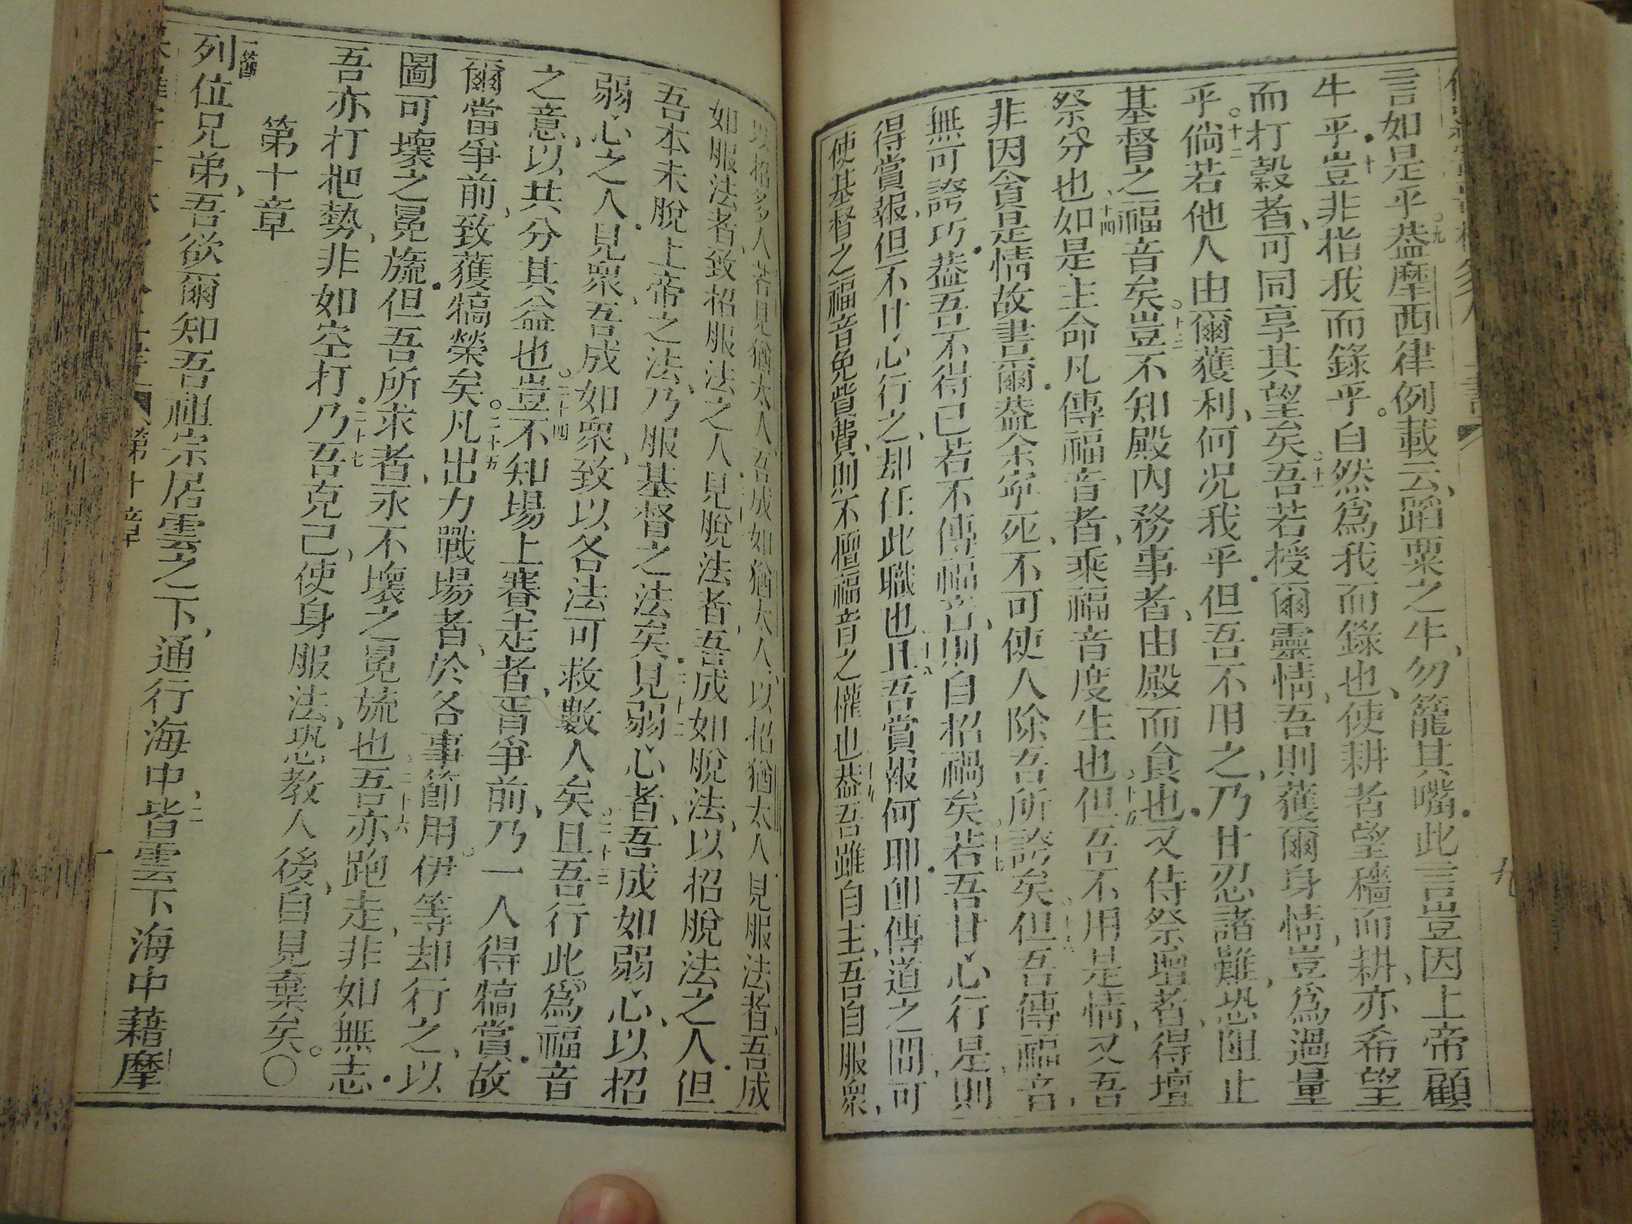 言如是乎。九蓋摩西律例載云、蹈粟之牛、勿籠其嘴。此言豈因上帝顧
牛乎。十豈非指我而錄乎。自然爲我而錄也、使耕者望穡而耕、亦希望
而打穀者、可同享其望矣。十一吾若授爾靈情、吾則獲爾身情、豈爲過量
乎。十二倘若他人由爾獲利、何况我乎。但吾不用之、乃甘忍諸難、恐阻止
基督之福音矣。十三豈不知殿內務事者、由殿而食也。又侍祭壇者、得壇
祭分也。十四如是主命凡傳福音者、乘福音度生也。十五但吾不用是情、又吾
非因貪是情故書爾。蓋余寧死、不可使人除吾所誇矣。十六但吾傳福音、
無可誇巧。蓋吾不得已、若不傳福音、則自招禍矣。十七若吾甘心行是、則
得賞報、但不甘心行之、却任此職也。十八且吾賞報何耶、卽傳道之間、可
使基督之福音免貲費、則不擅福音之權也。十九蓋吾雖自主、吾自服衆、
以招多人。若見猶太人、吾成如猶太人、以招猶太人、見服法者、吾成
如服法者、致招服法之人、見脫法者、吾成如脫法、以招脫法之人、但
吾本未脫上帝之法、乃服基督之法矣。二十二見弱心者、吾成如弱心、以招
弱心之人。見衆、吾成如衆、致以各法可救數人矣。二十三且吾行此、爲福音
之意、以共分其益也。二十四豈不知場上賽走者、胥爭前、乃一人得犒賞。故
爾當爭前、致獲犒榮矣。二十五凡出力戰場者、於各事節用。伊等却行之、以
圖可壞之冕旒。但吾所求者、永不壞之冕旒也。二十六吾亦跑走、非如無志。
吾亦打把勢、非如空打。二十七乃吾克己、使身服法、恐教人後、自見棄矣。○
第十章
一節列位兄弟、吾欲爾知吾祖宗居雲之下、通行海中、二皆雲下海中藉摩
第十章